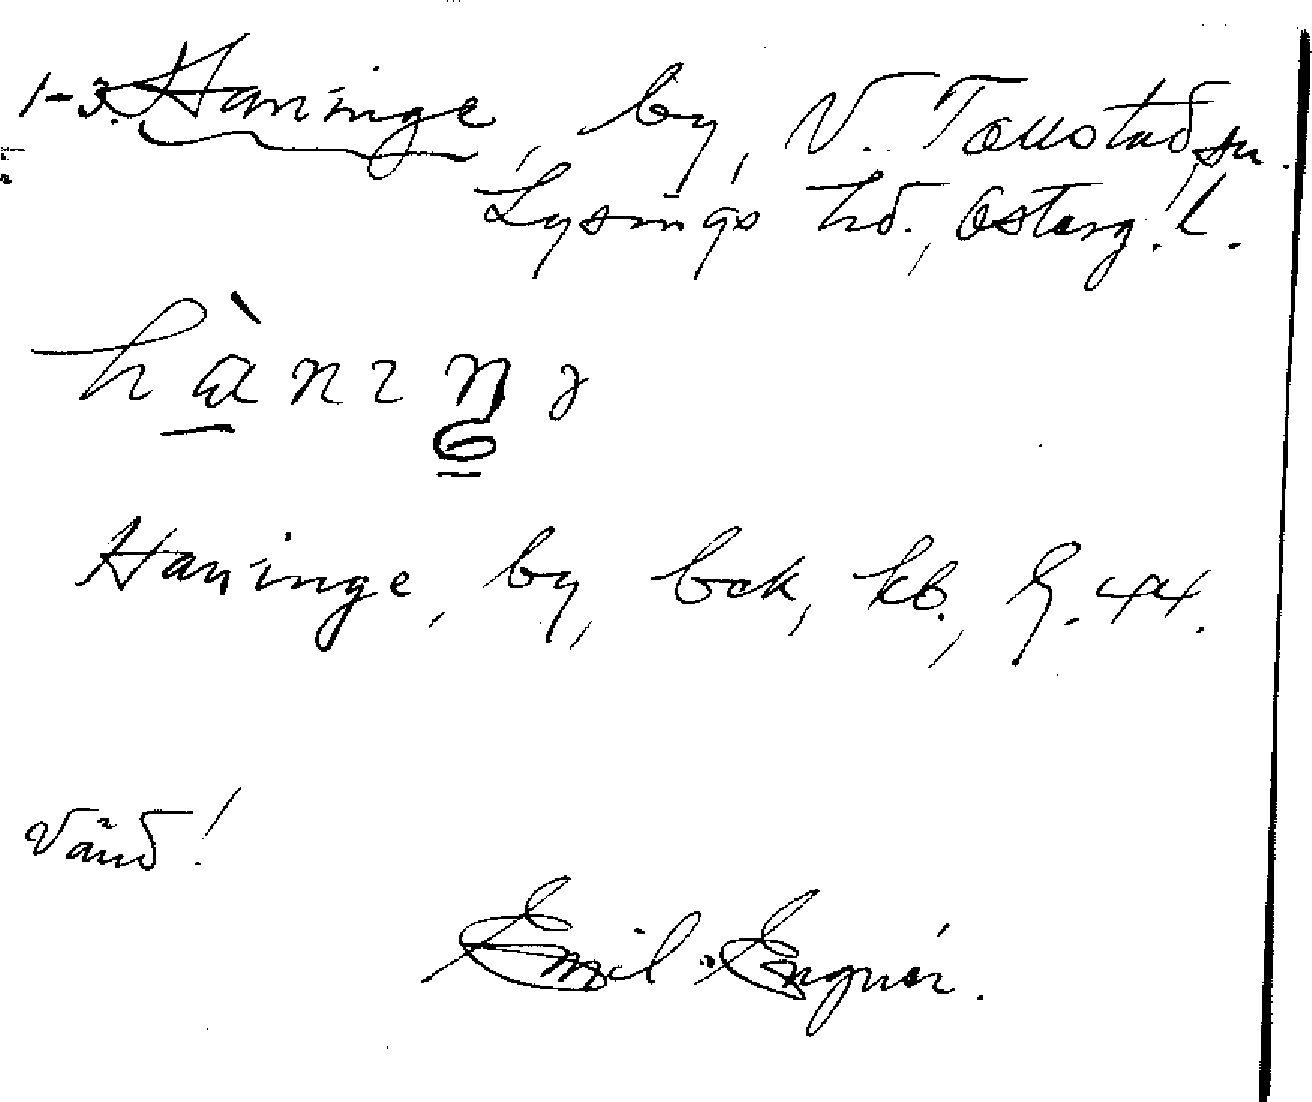 1-3. Haninge, by, V. Tollstad sn.
Lysings hd., Österg. l.
hànıŋə
Haninge, by, bek, kb., G. 44.
Vänd!
Emil Engnér.